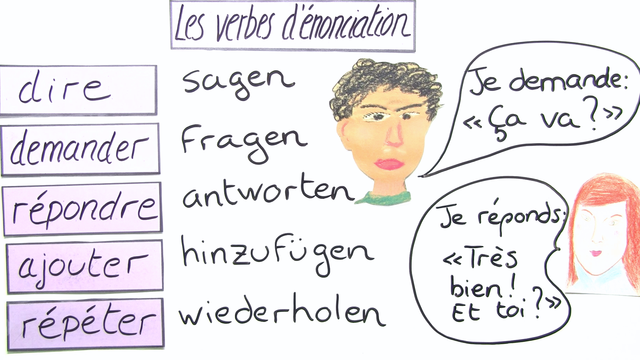 Les verbes d'énonciation
dire sagen
demander fragen
répondre antworten
ajouter hinzufügen
répéter wiederholen
Je demande:
«Ça va?»
Je réponds:
«Très
bien!
Et toi?»